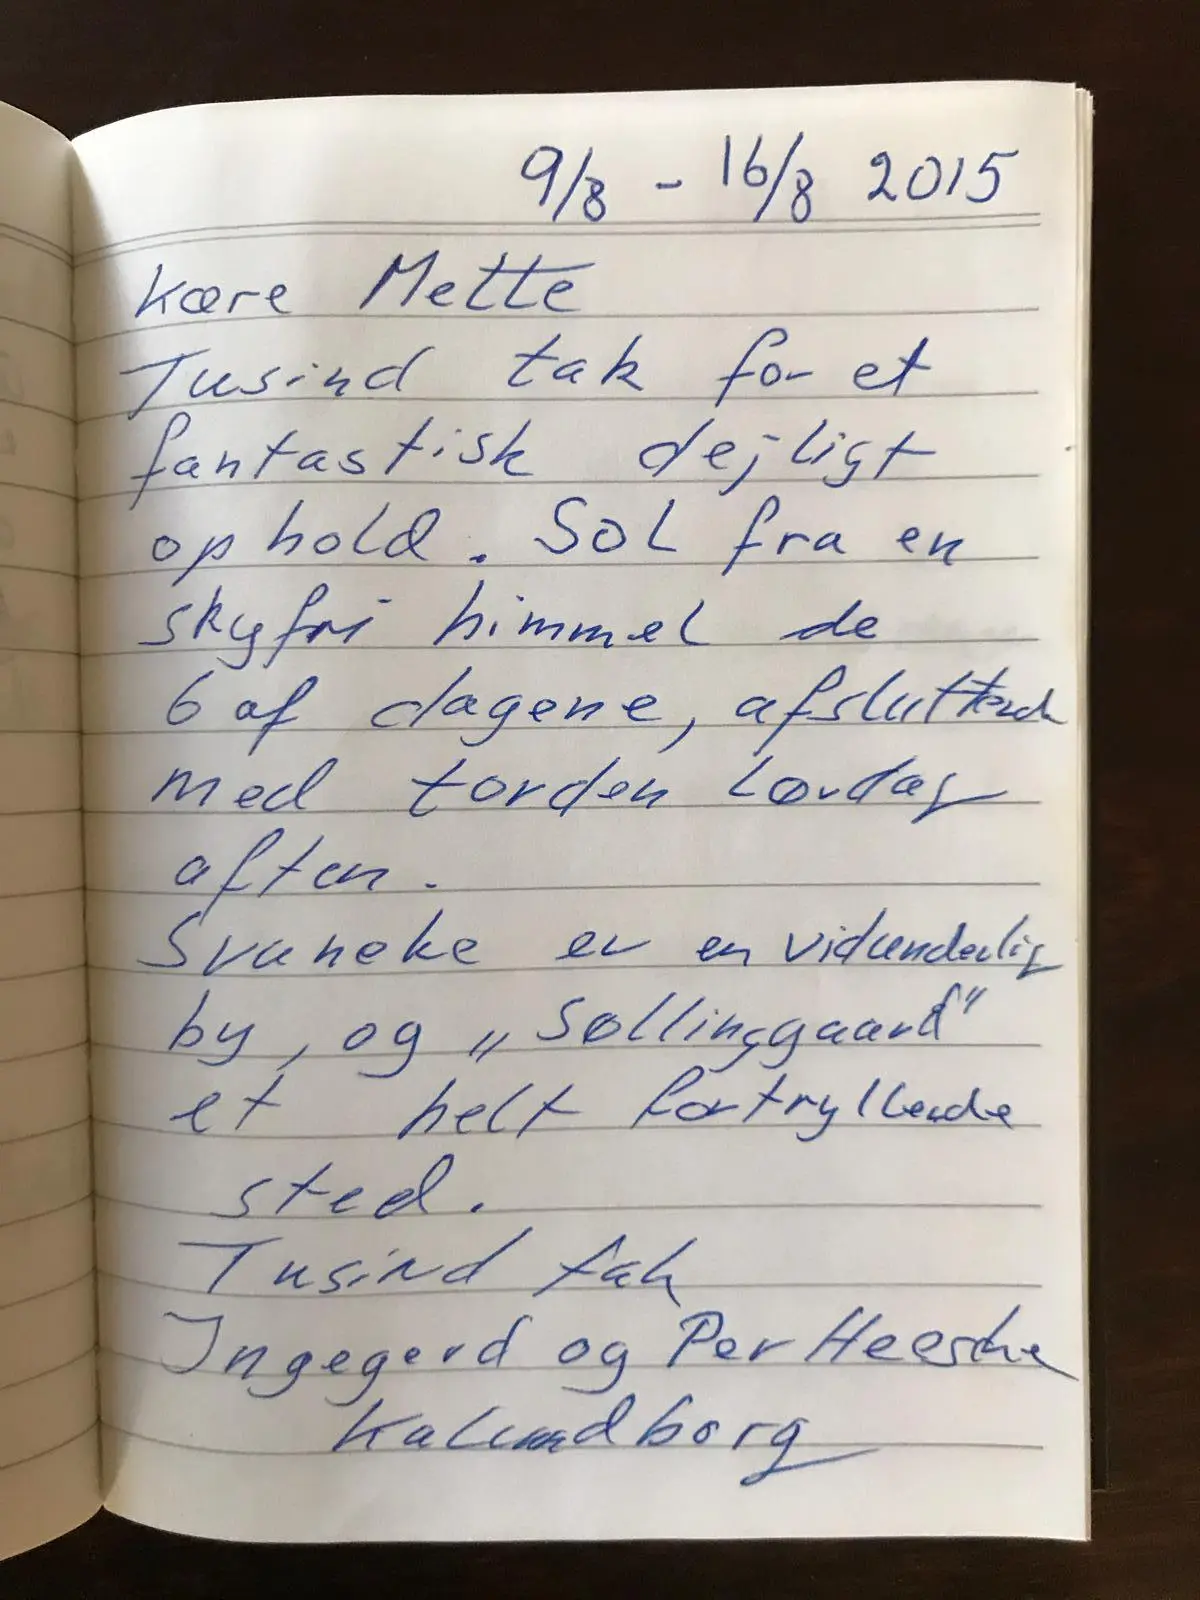 9/8 - 16/8 2015
Kære Mette
Tusind tak for et
fantastisk dejligt
ophold. Sol fra en
skyfri himmel de
6 af dagene, afsluttende
med torden Lørdag
aften.
Svaneke er en vidunderlig
by, og „Søllinggaard"
et helt fortryllende
sted.
Tusind tak
Ingegerd og Per Heesche
Kalundborg